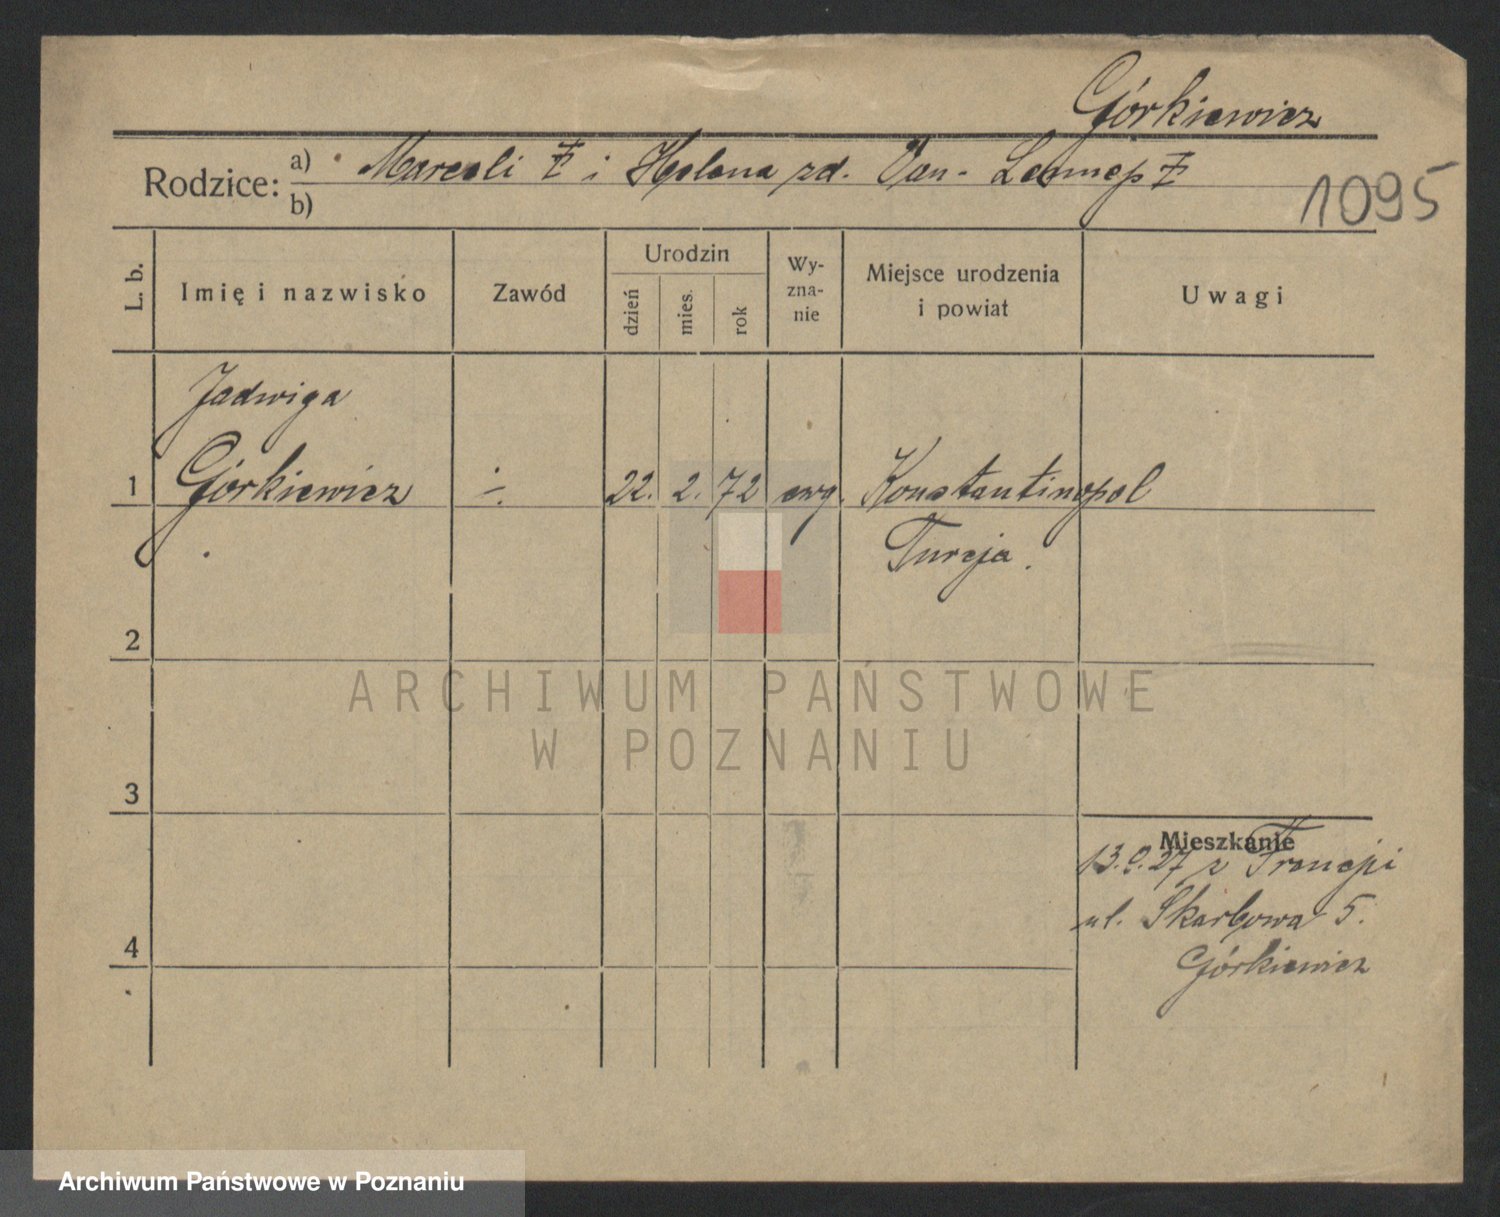 Górkiewicz
Rodzice: a) Marceli i Helena zd. Van-Lennep
b)
1095
L. b.
Imię i nazwisko
Zawód
Urodzin
dzień
mies.
rok
Wy-
zna-
nie
Miejsce urodzenia
i powiat
Uwagi
Jadwiga
1 Górkiewicz ÷ 22. 2. 72 ewg. Konstantinopol
Turcja.
2
3
4
Mieszkanie
z Francji
ul. Skarbowa 5.
Górkiewicz
ARCHIWUM PAŃSTWOWE
W POZNANIU
Archiwum Państwowe w Poznaniu